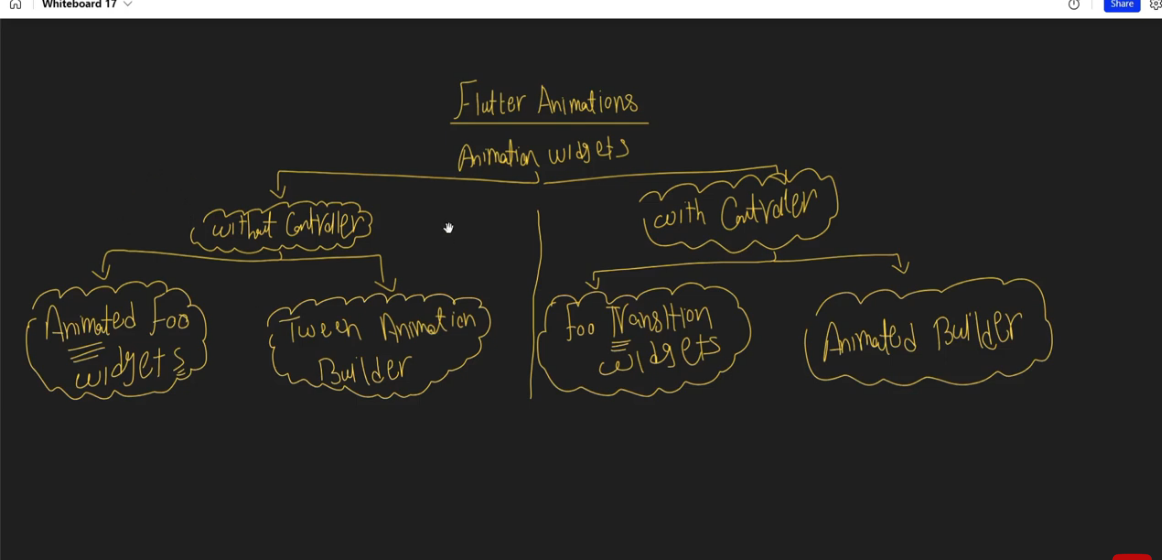 Whiteboard 17
Share
Flutter Animations
Animation widgets
without Controller
with Controller
Animated Foo
widgets
Tween Animation
Builder
Foo Transition
widgets
Animated Builder